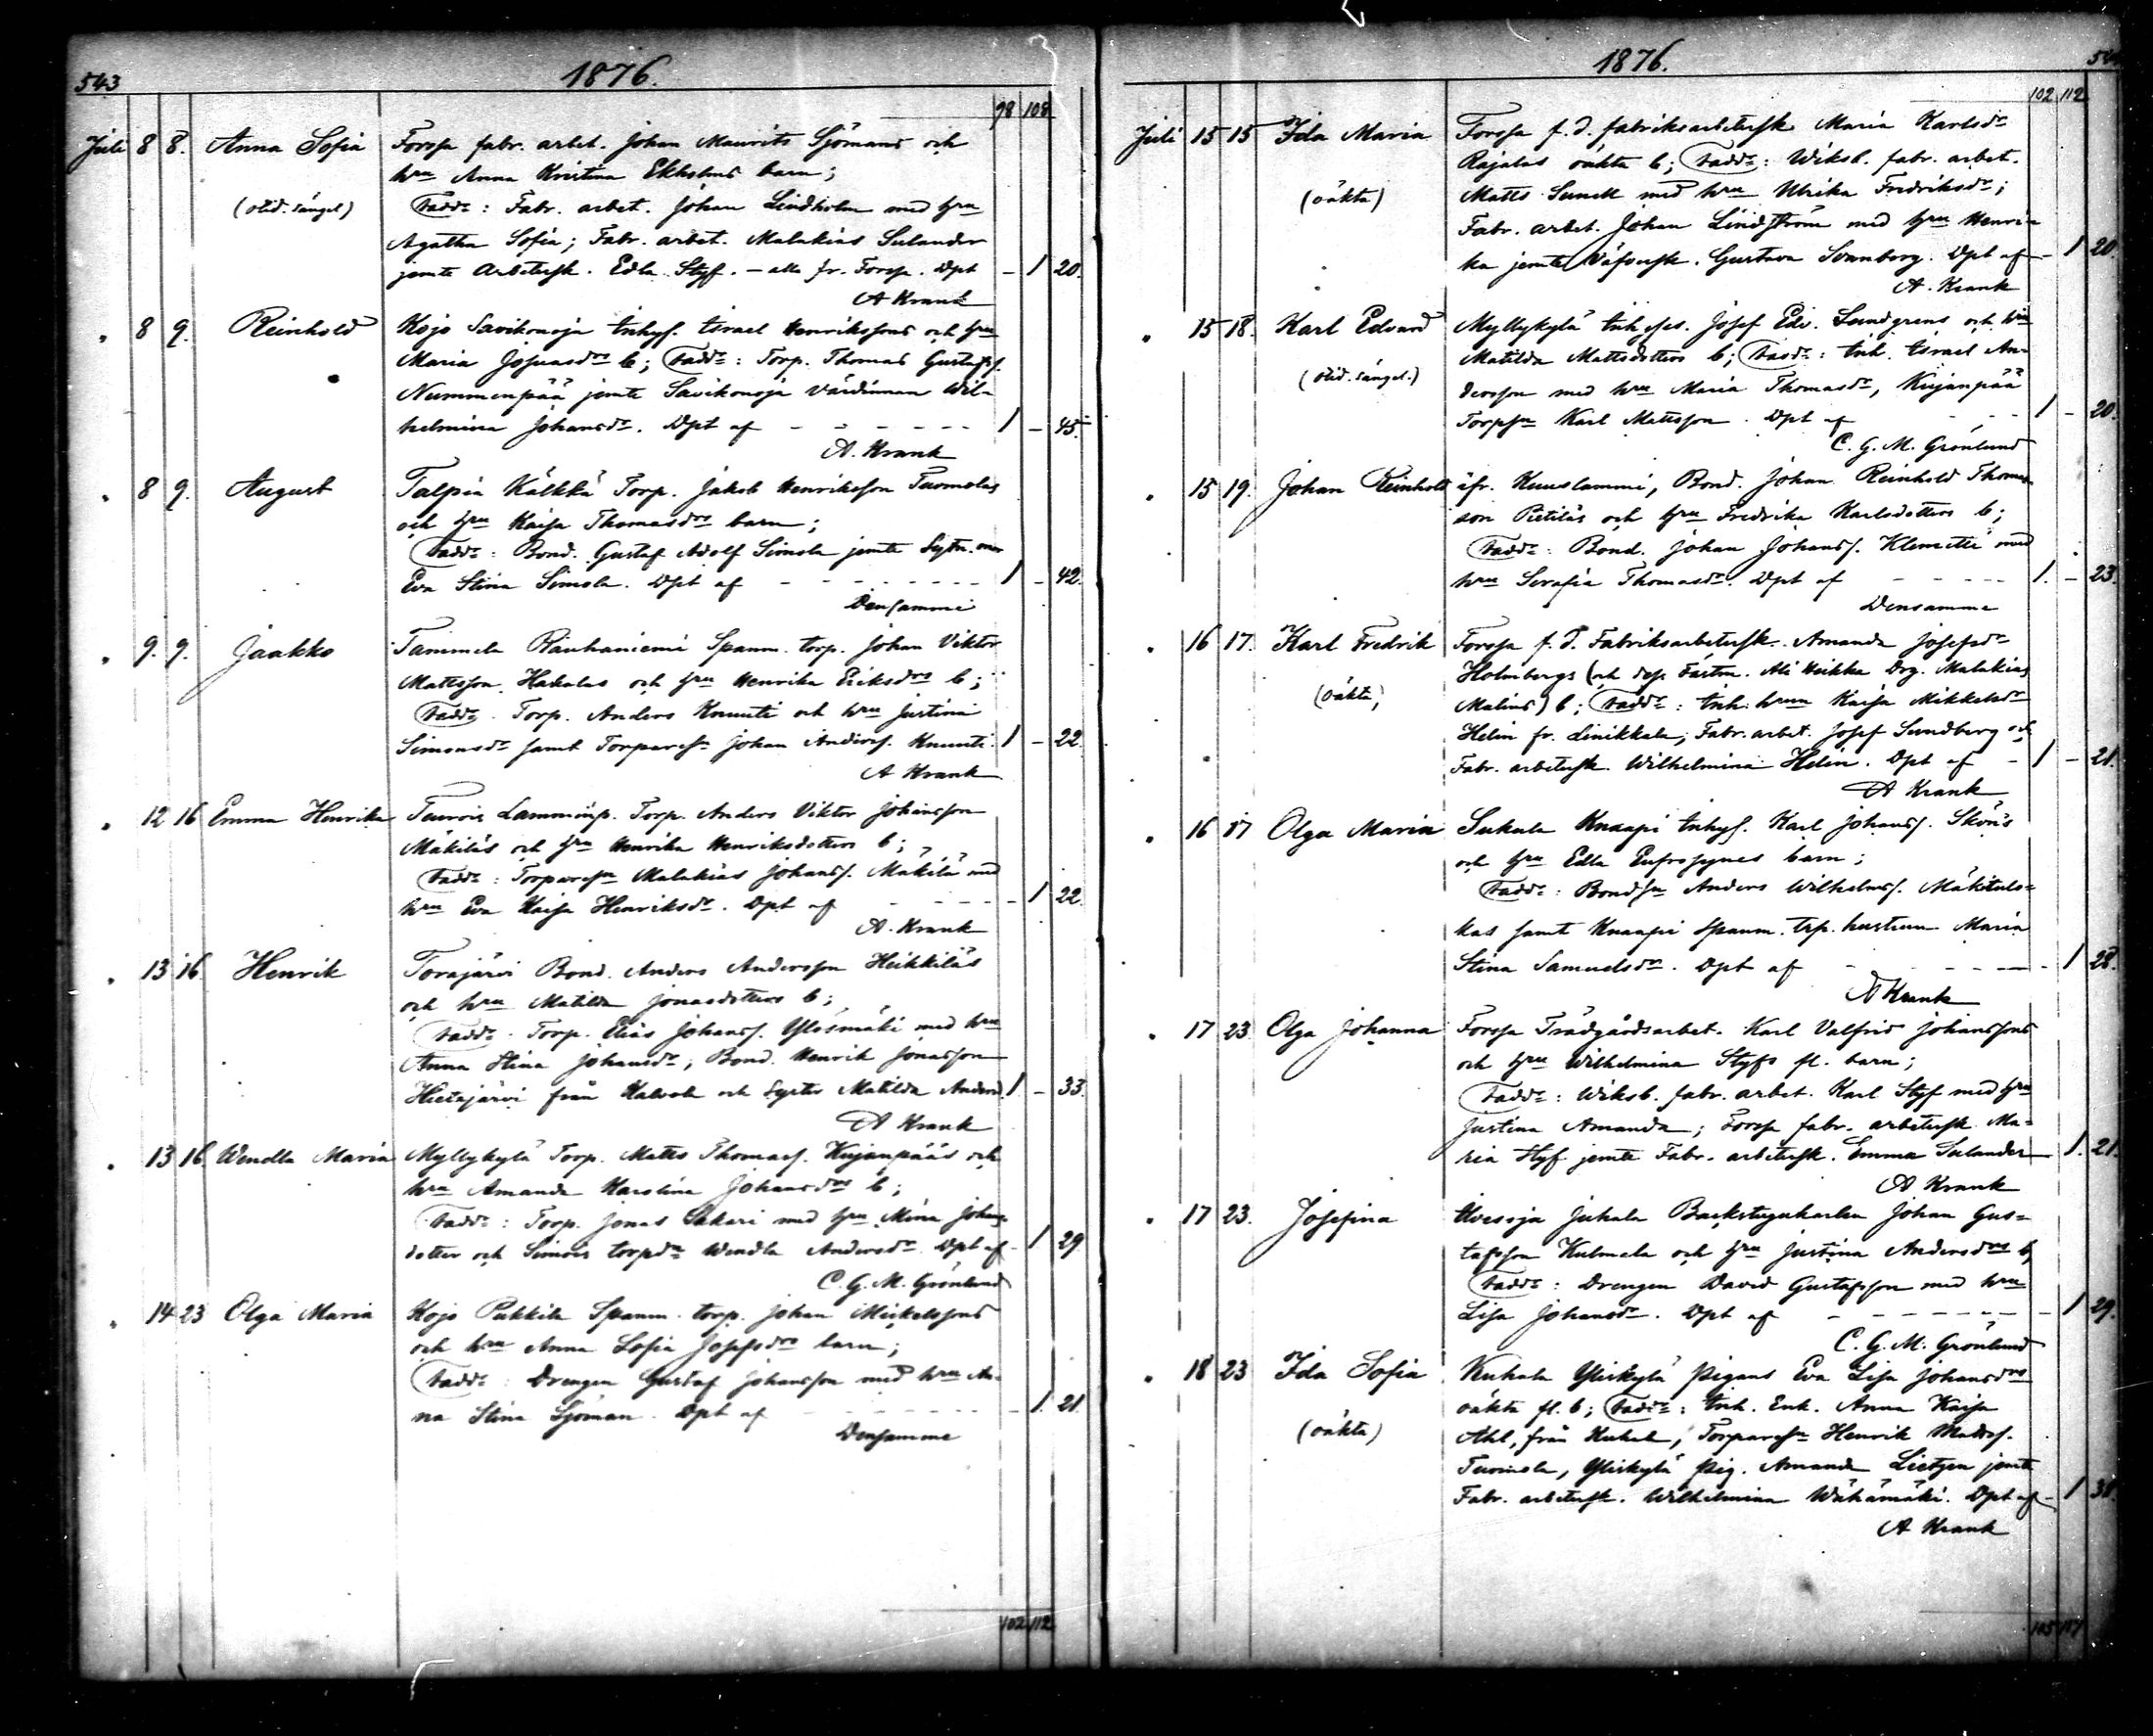 543
1876.
98 108
Juli 8 8. Anna Sofia Forssa fabr. arbet. Johan Maurits Sjömans och
hru Anna Kristina Ekholms barn;
Fadd: Fabr. arbet. Johan Lindholm med hru
Agatha Sofia; Fabr. arbet. Malakias Sulander
jemte Arbetersk. Edla Styf. – alla fr. Forssa. Dpt – 1 20.
A Krank
" 8 9. Reinhold Kojo Savikonoja Inhys. Israel Henrikssons och hru
Maria Josuasdrs b; Fadd: Torp. Thomas Gustafss.
Nummenpää jemte Savikonoja värdinnan Wil-
helmina Johansdr. Dpt af 1 – 45.
A. Krank
" 8 9. August Talpia Kälkkä Torp. Jakob Henriksson Tuomolas
och hru Kaisa Thomasdrs barn;
Fadd: Bond. Gustaf Adolf Simola jemte
Eva Stina Simola. Dpt af 1 – 42.
Densamme
" 9. 9. Jaakko Tammela Rauhaniemi Spanm. torp. Johan Viktor
Mattsson Hakalas och hru Henrika Eriksdrs b;
Fadd. Torp. Anders Knuuti och hru Justina
Simonsdr samt Torparesn Johan Anderss. Knuuti. 1 – 22.
A Krank
" 12 16 Emma Henrika Turois Lamminp. Torp. Anders Viktor Johansson
Mäkiläs och hru Henrika Henriksdotters b;
Fadd: Torparesn Malakias Johanss. Mäkilä med
hru Eva Kaisa Henriksdr. Dpt af – 1 22.
A. Krank
" 13 16. Henrik Torajärvi Bond. Anders Andersson Heikkiläs
och hru Matilda Jonasdotters b;
Fadd. Torp. Elias Johanss. Ylösmäki med hru
Anna Stina Johansdr; Bond. Henrik Jonasson
Hietajärvi från Kalvola och Syster Matilda Andersd. 1 – 33.
A Krank
" 13 16 Wendla Maria Myllykylä Torp. Matts Thomass. Kujanpääs och
hru Amanda Karolina Johansdrs b;
Fadd: Torp. Jonas Sakari med hru Mina Johans-
dotter och Simois torpdr Wendla Andersdr. Dpt af – 1 29
C. G. M. Grönlund
" 14 23 Olga Maria Kojo Pukkila Spanm. torp. Johan Mickelssons
och hru Anna Sofia Josefsdrs barn;
Fadd: Drengen Gustaf Johansson med hru An-
na Stina Sjöman. Dpt af – 1. 21.
Densamme
102 112
1876.
102 112
Juli 15 15 Ida Maria Forssa f. d. fabriksarbetersk. Maria Karlsdr
Rajalas oäkta b; Fadd: Wiksb. fabr. arbet.
(oäkta) Matts Sunell med hru Ulrika Fredriksdr;
Fabr. arbet. Johan Lindström med hru Henri-
ka jemte Väfversk. Gustava Svanborg. Dpt af – 1 20.
A. Krank
" 15 18. Karl Edvard Myllykylä Inhyses. Josef Edv. Lundgrens och hru
Matilda Mattsdotters b; Fadd: Inh. Israel An-
dersson med hru Maria Thomasdr, Kujanpää
Torpsn Karl Mattsson. Dpt af 1 – 20.
C. G. M. Grönlund
" 15 19. Johan Reinhold Kuuslammi, Bond. Johan Reinhold Thomas-
son Pietiläs och hru Fredrika Karlsdotters b;
Fadd: Bond. Johan Johanss. Klemetti med
hru Serafia Thomasdr. Dpt af 1. – 23.
Densamme
" 16 17. Karl Fredrik Forssa f. d. Fabriksarbetersk. Amanda Josefsdr
Holmbergs (och dess Fästm. Ali Heikka Drg. Malakias
(oäkta) Malins) b; Fadd: Inh. hrun Kaisa Mikkelsdr
Helin fr. Linikkala, Fabr. arbet. Josef Sundberg och
Fabr. arbetersk. Wilhelmina Helin. Dpt af – 1 – 21.
A Krank
" 16 17 Olga Maria Sukula Knaapi Inhys. Karl Johanss. Sköns
och hru Edla Eufrosynes barn;
Fadd: Bondsn Anders Wilhelmss. Mäkitulo-
kas samt Knaapi Spanm. trp. hustrun Maria
Stina Samuelsdr. Dpt af – 1 28.
A Krank
" 17 23 Olga Johanna Forssa Trädgårdsarbet. Karl Valfrid Johanssons
och hru Wilhelmina Styfs fl. barn;
Fadd: Wiksb. fabr. arbet. Karl Styf med hru
Justina Amanda; Forssa fabr. arbetersk. Ma-
ria Styf jemte Fabr. arbetersk. Emma Sulander – 1. 21.
A Krank
" 17 23. Josefina Juhala Backstugukarlen Johan Gus-
tafsson Kulmala och hru Justina Andersdrs b,
Fadd: Drengen David Gustafsson med hru
Lisa Johansdr. Dpt af – 1 29.
C. G. M. Grönlund
" 18 23 Ida Sofia Kuhala Yliskylä pigans Eva Lisa Johansdrs
oäkta fl. b; Fadd: Inh. Enk. Anna Kaisa
(oäkta) Ahl, från Kuhala, Torparesn Henrik Matss.
Tuomola, Yliskylä pig. Amanda Lietzen jemte
Fabr. arbetersk. Wilhelmina Wähämäki. Dpt af – 1 38.
A Krank
105 117